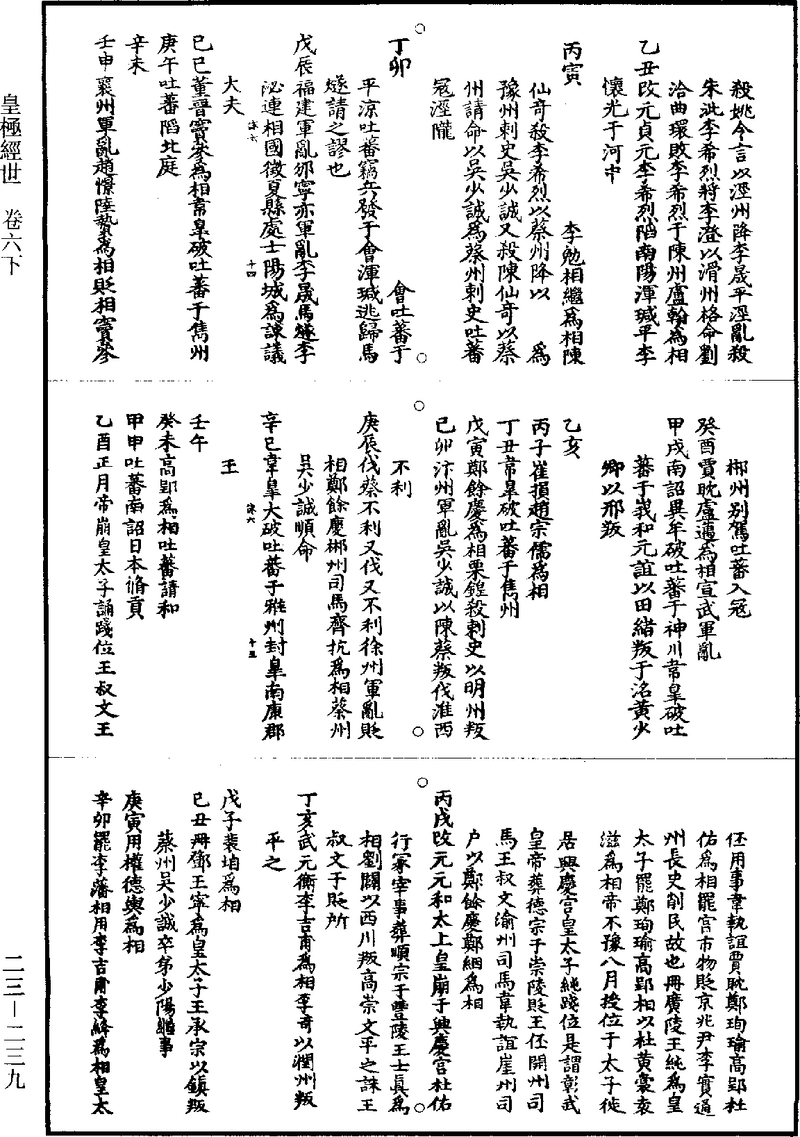 皇極經世　卷六下
二三—二三九
殺姚令言以涇州降李晟平涇亂殺
朱泚李希烈將李澄以滑州格命劉
洽曲環敗李希烈于陳州盧翰為相
乙丑改元貞元李希烈陷南陽渾瑊平李
懷光于河中
丙寅　李勉相繼為相陳
仙奇殺李希烈以蔡州降以　為
豫州刺史吳少誠又殺陳仙奇以蔡
州請命以吳少誠為蔡州刺史吐蕃
冦涇隴
丁卯　會吐蕃于
平凉吐蕃竊兵發于會渾瑊逃歸馬
燧請之謬也
戊辰福建軍亂邠寧亦軍亂李晟馬燧李
泌連相國徵夏縣處士陽城為諫議
十四
大夫
己巳董晉竇參為相韋皐破吐蕃于雋州
庚午吐蕃陷北庭
辛未
壬申襄州軍亂趙憬陸贄為相貶相竇參
郴州别駕吐蕃入冦
癸酉賈耽盧邁為相宣武軍亂
甲戌南詔異牟破吐蕃于神川韋皐破吐
蕃于峩和元誼以田緒叛于洺黃少
卿以邢叛
乙亥
丙子崔損趙宗儒為相
丁丑韋皐破吐蕃于雋州
戊寅鄭餘慶為相栗鍠殺刺史以明州叛
己卯汴州軍亂吳少誠以陳蔡叛伐淮西
不利
庚辰伐蔡不利又伐又不利徐州軍亂貶
相鄭餘慶郴州司馬齊抗為相蔡州
吳少誠順命
辛巳韋皐大破吐蕃于雅州封皐南康郡
十五
王
壬午
癸未高郢為相吐蕃請和
甲申吐蕃南詔日本脩貢
乙酉正月帝崩皇太子誦踐位王叔文王
伾用事韋執誼賈耽鄭珣瑜高郢杜
佑為相罷宫市物貶京兆尹李實通
州長史削民故也冊廣陵王純為皇
太子罷鄭珣瑜高郢相以杜黄裳袁
滋為相帝不豫八月授位于太子徙
居興慶宫皇太子純踐位是謂彰武
皇帝葬德宗于崇陵貶王伾開州司
馬王叔文渝州司馬韋執誼崖州司
户以鄭餘慶鄭絪為相
丙戌改元元和太上皇崩于興慶宫杜佑
行冢宰事葬順宗于豐陵王士真為
相劉闢以西川叛高崇文平之誅王
叔文于貶所
丁亥武元衡李吉甫為相李奇以潤州叛
平之
戊子裴垍為相
己丑冊鄧王寧為皇太子王承宗以鎮叛
蔡州吳少誠卒弟少陽繼事
庚寅用權德輿為相
辛卯罷李藩相用李吉甫李絳為相皇太